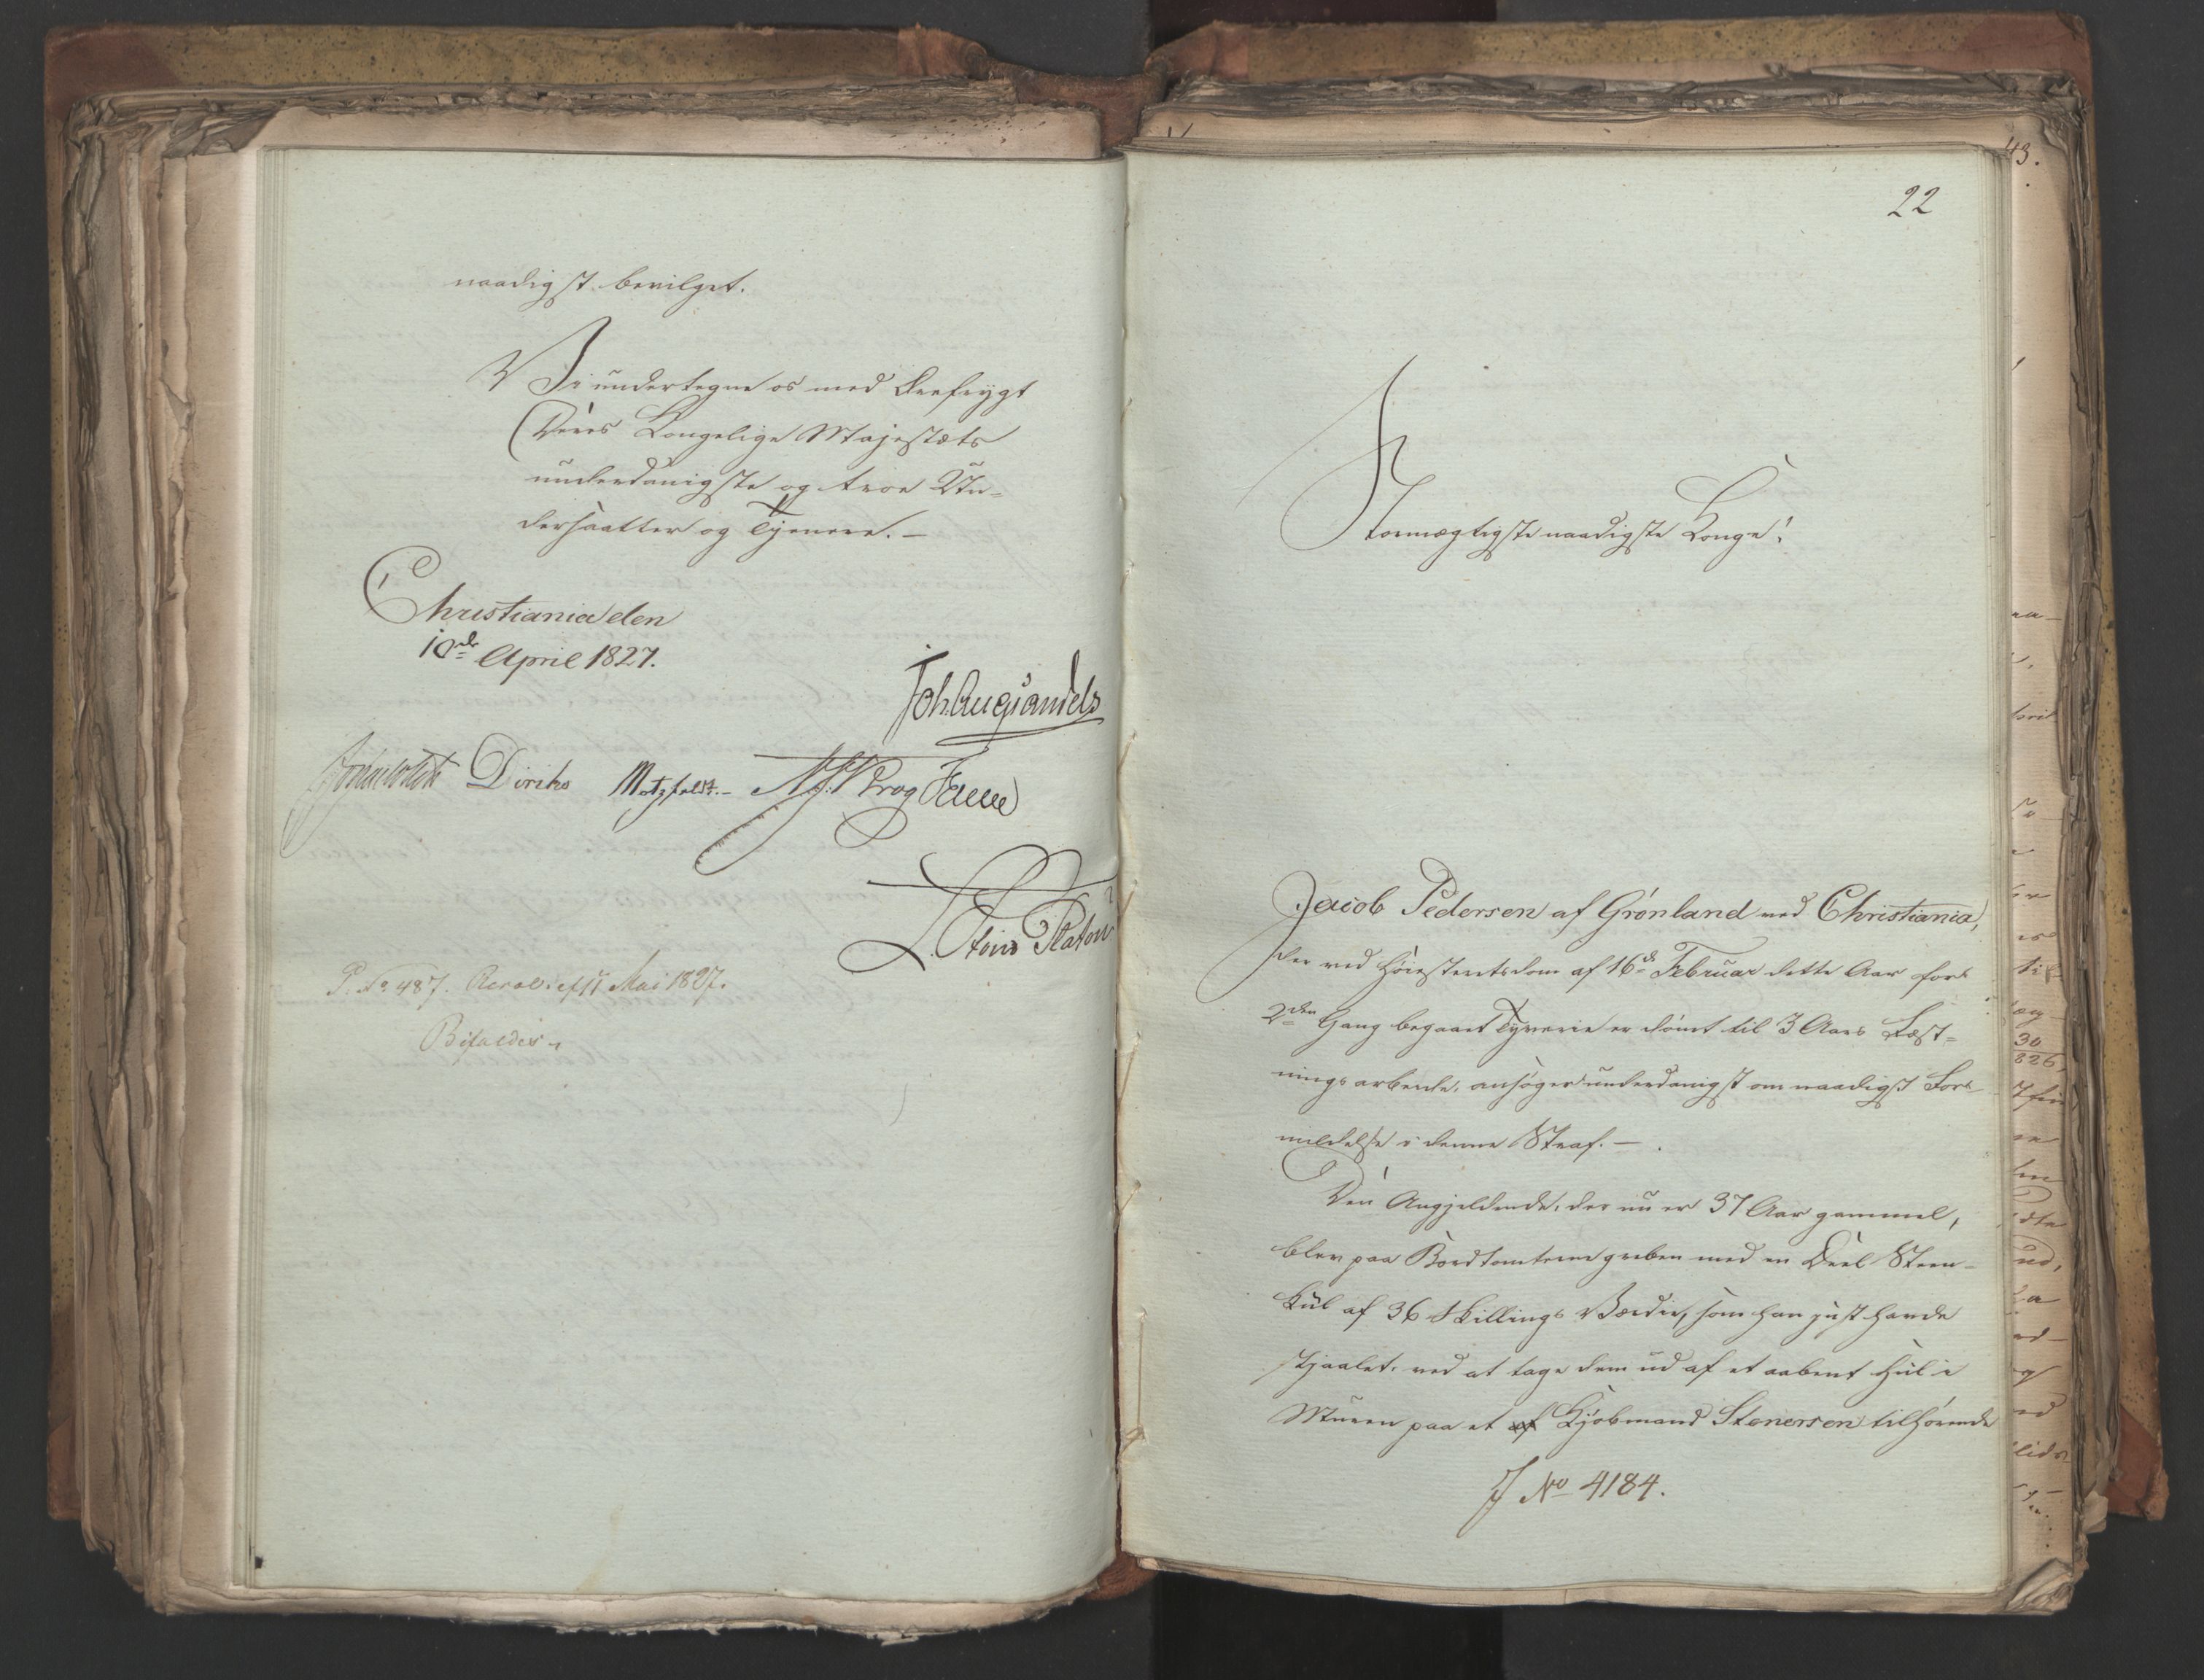 naadigst bevilget.
Vi undertegne os med Ærefrygt
Deres Kongelige Majestæts
underdanigste og troe Un=
dersaatter og Tjenere. —
Christiania den
10de April 1827.
Joh Aug Sandels
Diriks Motzfeldt. N. J. Krog Fasting
L. Stoud Platou
P. No 487. Resol. af 11 Mai 1827.
Bifaldes
22
Stormægtigste naadigste Konge!
Jacob Pedersen af Grønland ved Christiania,
der ved Høiesteretsdom af 16de Februar dette Aar for
2den Gang begaaet Tyverie er dømt til 3 Aars Fæst=
nings arbeide, ansøger underdanigst om naadigst For=
mildelse i denne Straf. —
Den Angjeldende, der nu er 37 Aar gammel,
blev paa Bordtomterne greben med en Deel Steen=
kul af 36 Skillings Værdie, som han just havde
stjaalet, ved at tage dem ud af et aabent Hul i
Muren paa et af Kjøbmand Stenersen tilhørende
J No 4184.
43.